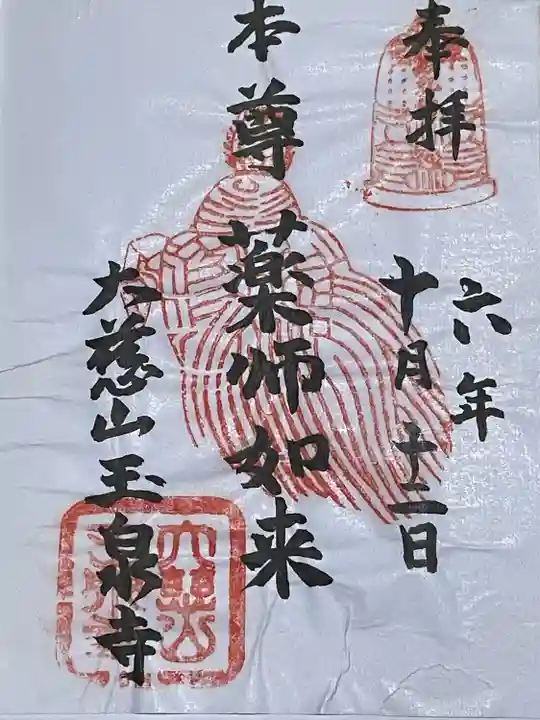 奉拝
六年
十月十二日
本尊薬師如来
大慈山玉泉寺